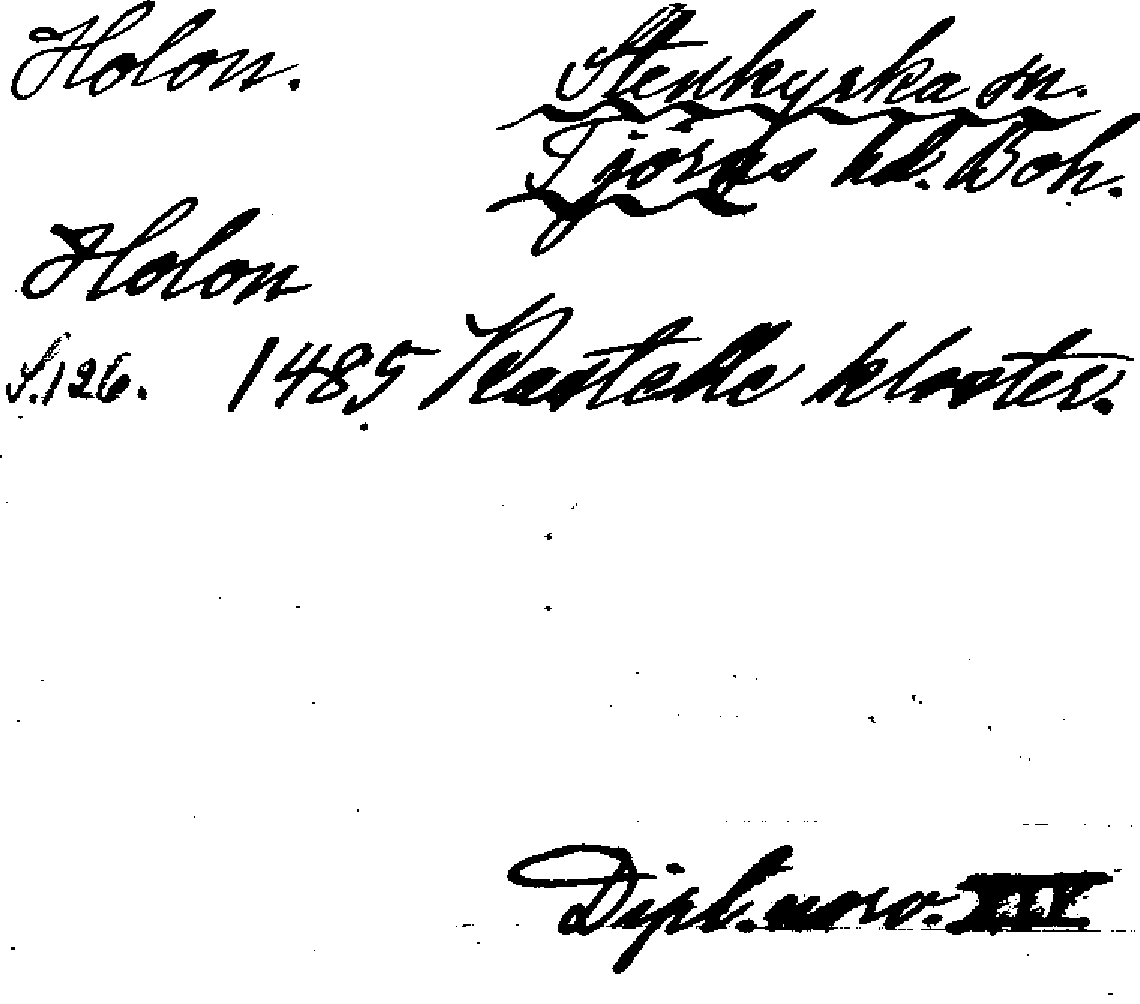 Holon. Stenkyrka sn.
Tjörns hd. Boh.
Holon
S.126. 1485 Kastelle kloster.
Dipl. norv. XIV.